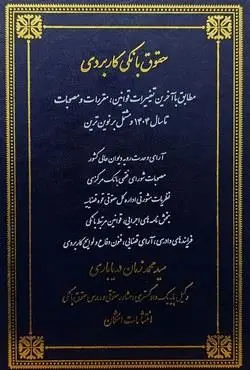 حقوق بانکی کاربردی
مطابق با آخرین تغییرات قوانین، مقررات و مصوبات
تا سال ۱۴۰۴ و مشتمل بر نوین ترین
آرای وحدت رویه دیوان عالی کشور
مصوبات شورای فقهی بانک مرکزی
نظریات مشورتی اداره کل حقوقی قوه قضاییه
بخش نامه های اجرایی، قوانین مرتبط بانکی
فرایندهای دادرسی، آرای قضایی، فنون دفاع و لوایح کاربردی
سید محمد زمان دریاباری
وکیل پایه یک دادگستری، مشاور حقوقی و مدرس حقوق بانکی
انتشارات